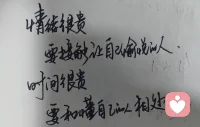 情绪很贵
要接触让自己愉悦的人.
时间很贵
要和懂自己的人相处